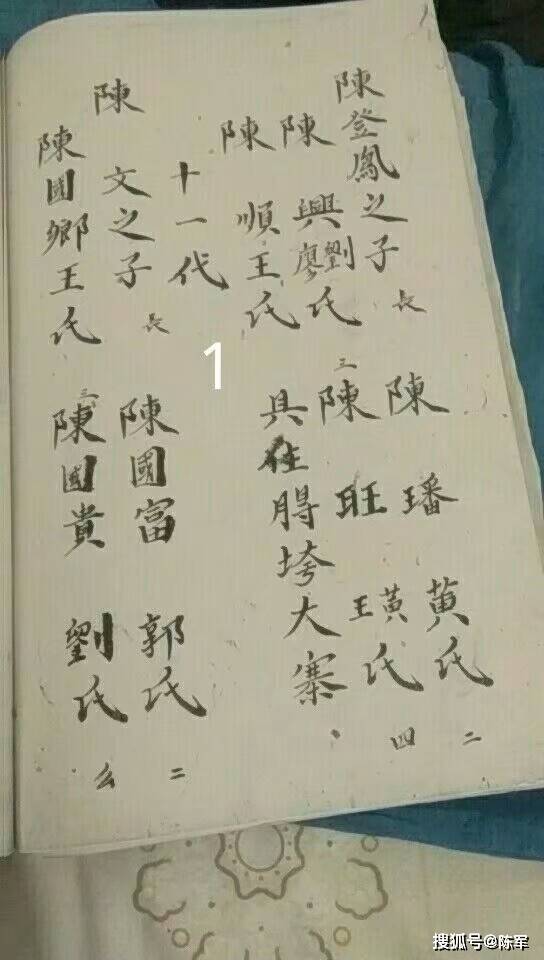 陳登鳳之子 長 陳璠黄氏 二
陳興劉廖氏 三 陳旺黃王氏 四
陳順王氏 具住脟垮大寨、
十一代
陳文之子 長 陳國富郭氏 二
陳國鄉王氏 三 陳國貴劉氏 么
1
搜狐号@陈军